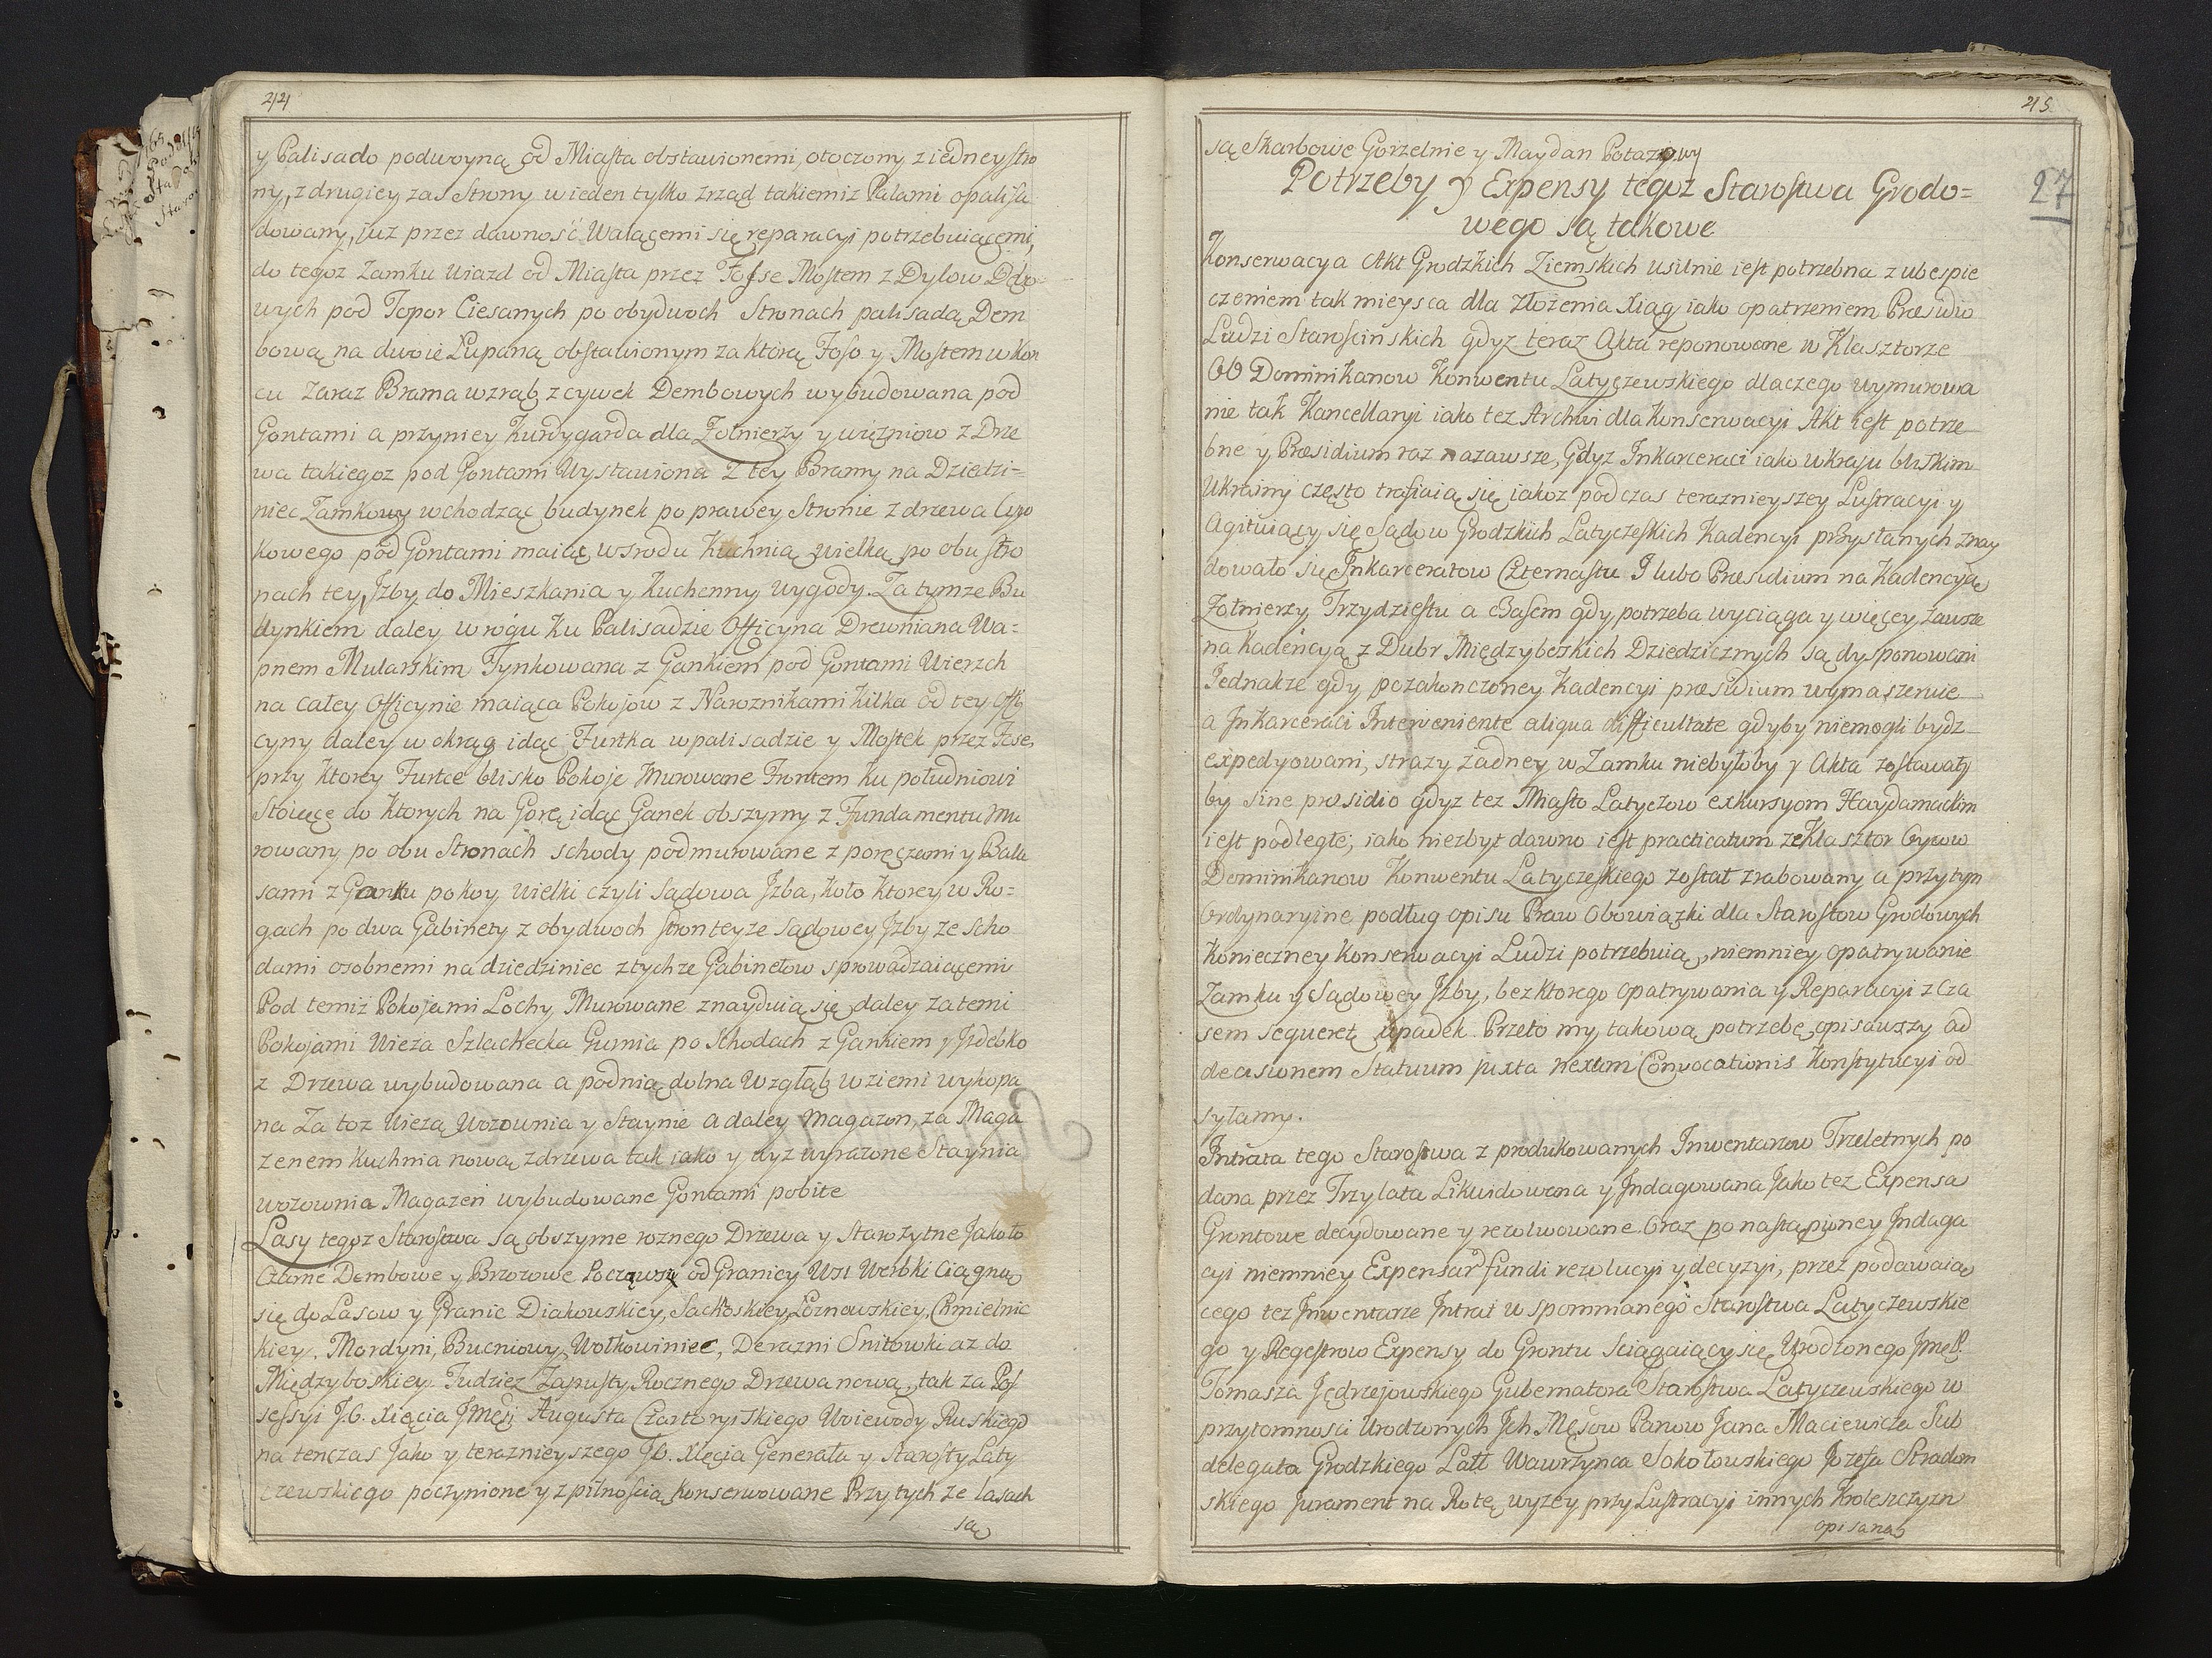 44
y Palisado podwoyną od Miasta obstawionemi, otoczony z iedney stro
ny, z drugiey zas Strony w ieden tylko zrząd takiemiz Palami opalisa
dowany, iuz przez dawność Walącemi się reparacyi potrzebuiącemi,
do tegoz Zamku Wiazd od Miasta przez Fosse Mostem z Dylow Dębo
wych pod Topor Ciesanych po obydwoch Stronach palisadą Dem
bową na dwoie Łupaną obstawionym za którą Fosą y Mostem w kon
cu zaraz Brama wzrąb z cywek Dembowych wybudowana pod
Gontami a przyniey Kurdygarda dla Żołnierzy y więzniow z Drze
wa takiegoz pod Gontami Wystawiona Z tey Bramy na Dziedzi=
niec Zamkowy wchodząc budynek po prawey Stronie z drzewa Cyw
kowego pod Gontami maiąc wsrodu Kuchnią wielką po obu stro
nach tey Jzby do Mieszkania y Kuchenny wygody. Za tymze Bu
dynkiem daley w rogu ku Palisadzie Officyna Drewniana Wa=
pnem Mularskim Tynkowana z Gankiem pod Gontami Wierzch
na całey Officynie maiąca Pokojow z Naroznikami kilka od tey Offi
cyny daley w okrąg idąc Furtka w palisadzie y Mostek przez Fosę
przy ktorey Furtce blisko Pokoje Murowane Frontem ku południowi
Stoiące do ktorych na Gorę idąc Ganek obszyrny z Fundamentu Mu
rowany po obu Stronach schody podmurowane z poręczami y Bala
sami z Ganku pokoy Wielki czyli Sądowa Jzba, koło ktorey w Ro=
gach po dwa Gabinety z obydwoch stron teyze Sądowey Jzby ze scho
dami osobnemi na dziedziniec z tychze Gabinetow sprowadzaiącemi
Pod temiz Pokojami Lochy Murowane znayduią się daley za temi
Pokojami Wieza Szlachecka Gurnia po Schodach z Gankiem y Jzdebko
z Drzewa wybudowana a podnią dolna Wzgłąb w ziemi wykopa
na Za toz Wiezą Wozownia y Staynie a daley Magazyn, za Maga
zenem Kuchnia nową z drzewa tak iako y wyz wyrazone Staynia
wozownia Magazen wybudowane Gontami pobite
Lasy tegoz Starostwa są obszyrne roznego Drzewa y Starozytne Jako to
Czarne Dembowe y Brzozowe Począwszy od Granicy Wsi Werbki Ciągną
się do Lasow y Granic Diakowskiey, Sachoskiey, Łoznowskiey, Chmielnic
kiey, Mordyni, Bucniowy, Wołkowiniec, Derazni Snitowki az do
Międzyboskiey. Tudziez Zapusty Rocznego Drzewa nową, tak za Pos
sessyi J.O. Xięcia Jmęsi Augusta Czartoryiskiego Woiewody Ruskiego
na tenczas Jako y teraznieyszego JO. Xięcia Generała y Starosty Laty
czewskiego poczynione y z pilnoscią konserwowane Przy tych ze lasach
są
45
27
są Skarbowe Gorzelnie y Maydan Potazowy
Potrzeby y Expensy tegoz Starostwa Grodo=
wego są takowe
Konserwacya Akt Grodzkich Ziemskich usilnie iest potrzebna z ubespie
czeniem tak mieysca dla złożenia Xiąg iako opatrzeniem Præsidio
Ludzi Starościńskich gdyz teraz Akta reponowane w Klasztorze
OO Dominikanow Konwentu Latyczewskiego dlaczego wymurowa
nie tak Kancellaryi iako tez Archiwi dla konserwacyi Akt iest potrze
bne y Præsidium raz nazawsze, Gdyz Jnkarceraci iako w Kraju bliskim
Ukrainy często trafiaią się iakoz podczas teraznieyszey Lustracyi y
Agituiący się Sądow Grodzkich Latyczeskich Kadencyi przysłanych znay
dowało się Jnkarceratow Czternastu I lubo Præsidium na Kadencyą
Żołnierzy Trzydziestu a czasem gdy potrzeba wyciąga y więcey zawsze
na Kadencyą z Dubr Międzybozkich Dziedzicznych są dysponowani
Jednakze gdy po zakonczoney Kadencyi præsidium wymaszeruie
a Jnkarceraci Jnterveniente aliqua difficultate gdyby niemogli bydz
expedyowani, strazy zadney w Zamku niebyłoby y Akta zostawały
by sine præsidio gdyz tez Miasto Latyczow exkursyom Haydamackim
iest podległe; iako niezbyt dawno iest practicatum ze Klasztor Oycow
Dominikanow Konwentu Latyczeskiego został zrabowany a przytym
Ordynaryine podług opisu Praw Obowiązki dla Starostow Grodowych
Konieczney Konserwacyi Ludzi potrzebuią, niemniey opatrywanie
Zamku y Sądowey Jzby, bez ktorego opatrywania y Reparacyi z cza
sem sequeret upadek. Przeto my takową potrzebę opisawszy ad
decisionem Statuum juxta nexum Convocationis Konstytucyi od
syłamy.
Jntrata tego Starostwa z produkowanych Jnwentarzow Trzeletnych po
dana przez Trzy lata Likwidowana y Jndagowana Jako tez Expensa
Grontowe decydowane y rezolwowane. Oraz po nastąpioney Jndaga
cyi niemniey Expensar fundi rezolucyi y decyzyi, przez podawaią
cego tez Jnwentarze Jntrat wspomnianego Starostwa Latyczewskie
go y Regestrow Expensy do Grontu sciągaiący się Urodzonego Jmę P.
Tomasza Jędrzejowskiego Gubernatora Starostwa Latyczewskiego w
przytomnosci Urodzonych Jch Męsow Panow Jana Maciewicza Sub
delegata Grodzkiego Latt Wawrzynca Sokołowskiego Jozefa Stradom
skiego Jurament na Rotę wyzey przy Lustracyi innych Kroleszczyzn
opisaną